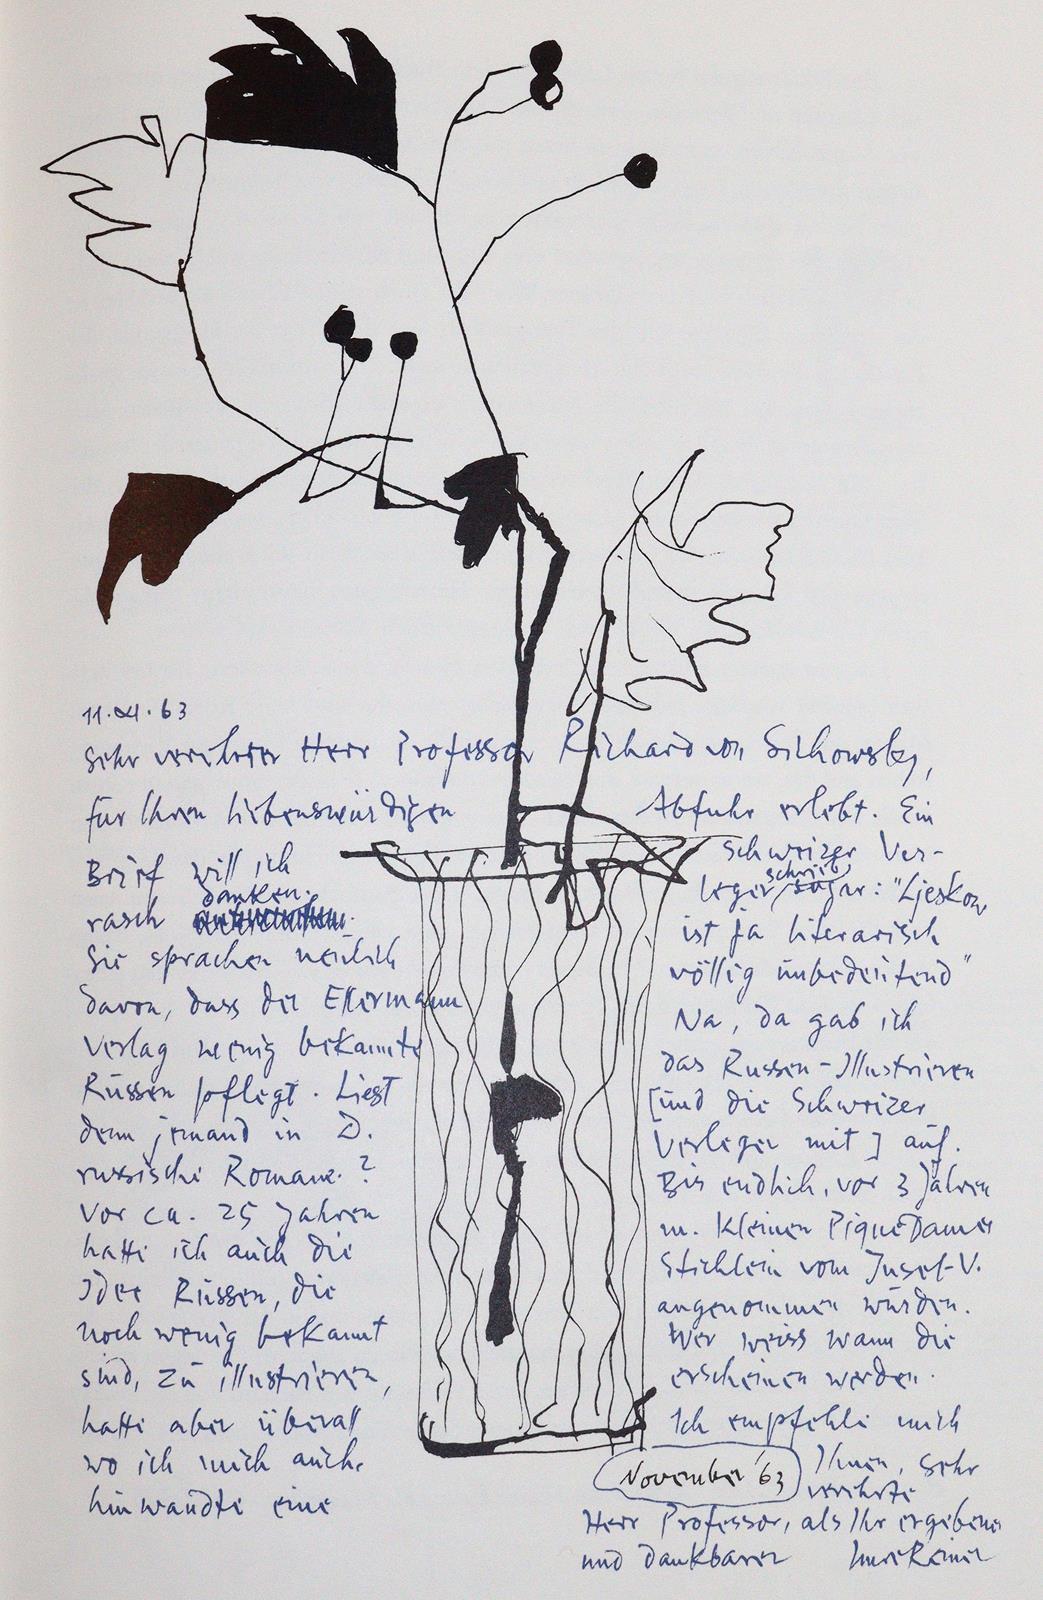 11.XI.63
Sehr verehrter Herr Professor Richard von Sichowsky,
für Ihren liebenswürdigen
Brief will ich
danken.
rasch
Sie sprachen neulich
davon, dass der Ellermann
Verlag wenig bekannte
Russen pflegt. Liest
denn jemand in D.
russische Romane?
Vor ca. 25 Jahren
hatte ich auch die
Idee Russen, die
noch wenig bekannt
sind, zu illustrieren,
hatte aber überall
wo ich mich auch
hinwandte eine
Abfuhr erlebt. Ein
Schweizer Ver-
schrieb
leger sogar: "Ljeskow
ist ja literarisch
völlig unbedeutend"
Na, da gab ich
das Russen-Illustrieren
[und die Schweizer
Verleger mit] auf.
Bis endlich, vor 3 Jahren
m. kleinen PiqueDame
Stichlein vom Insel-V.
angenommen wurden.
Wer weiss wann die
erscheinen werden.
Ich empfehle mich
Ihnen, sehr
verehrte
November '63
Herr Professor, als Ihr ergebener
und dankbarer Imre Reiner